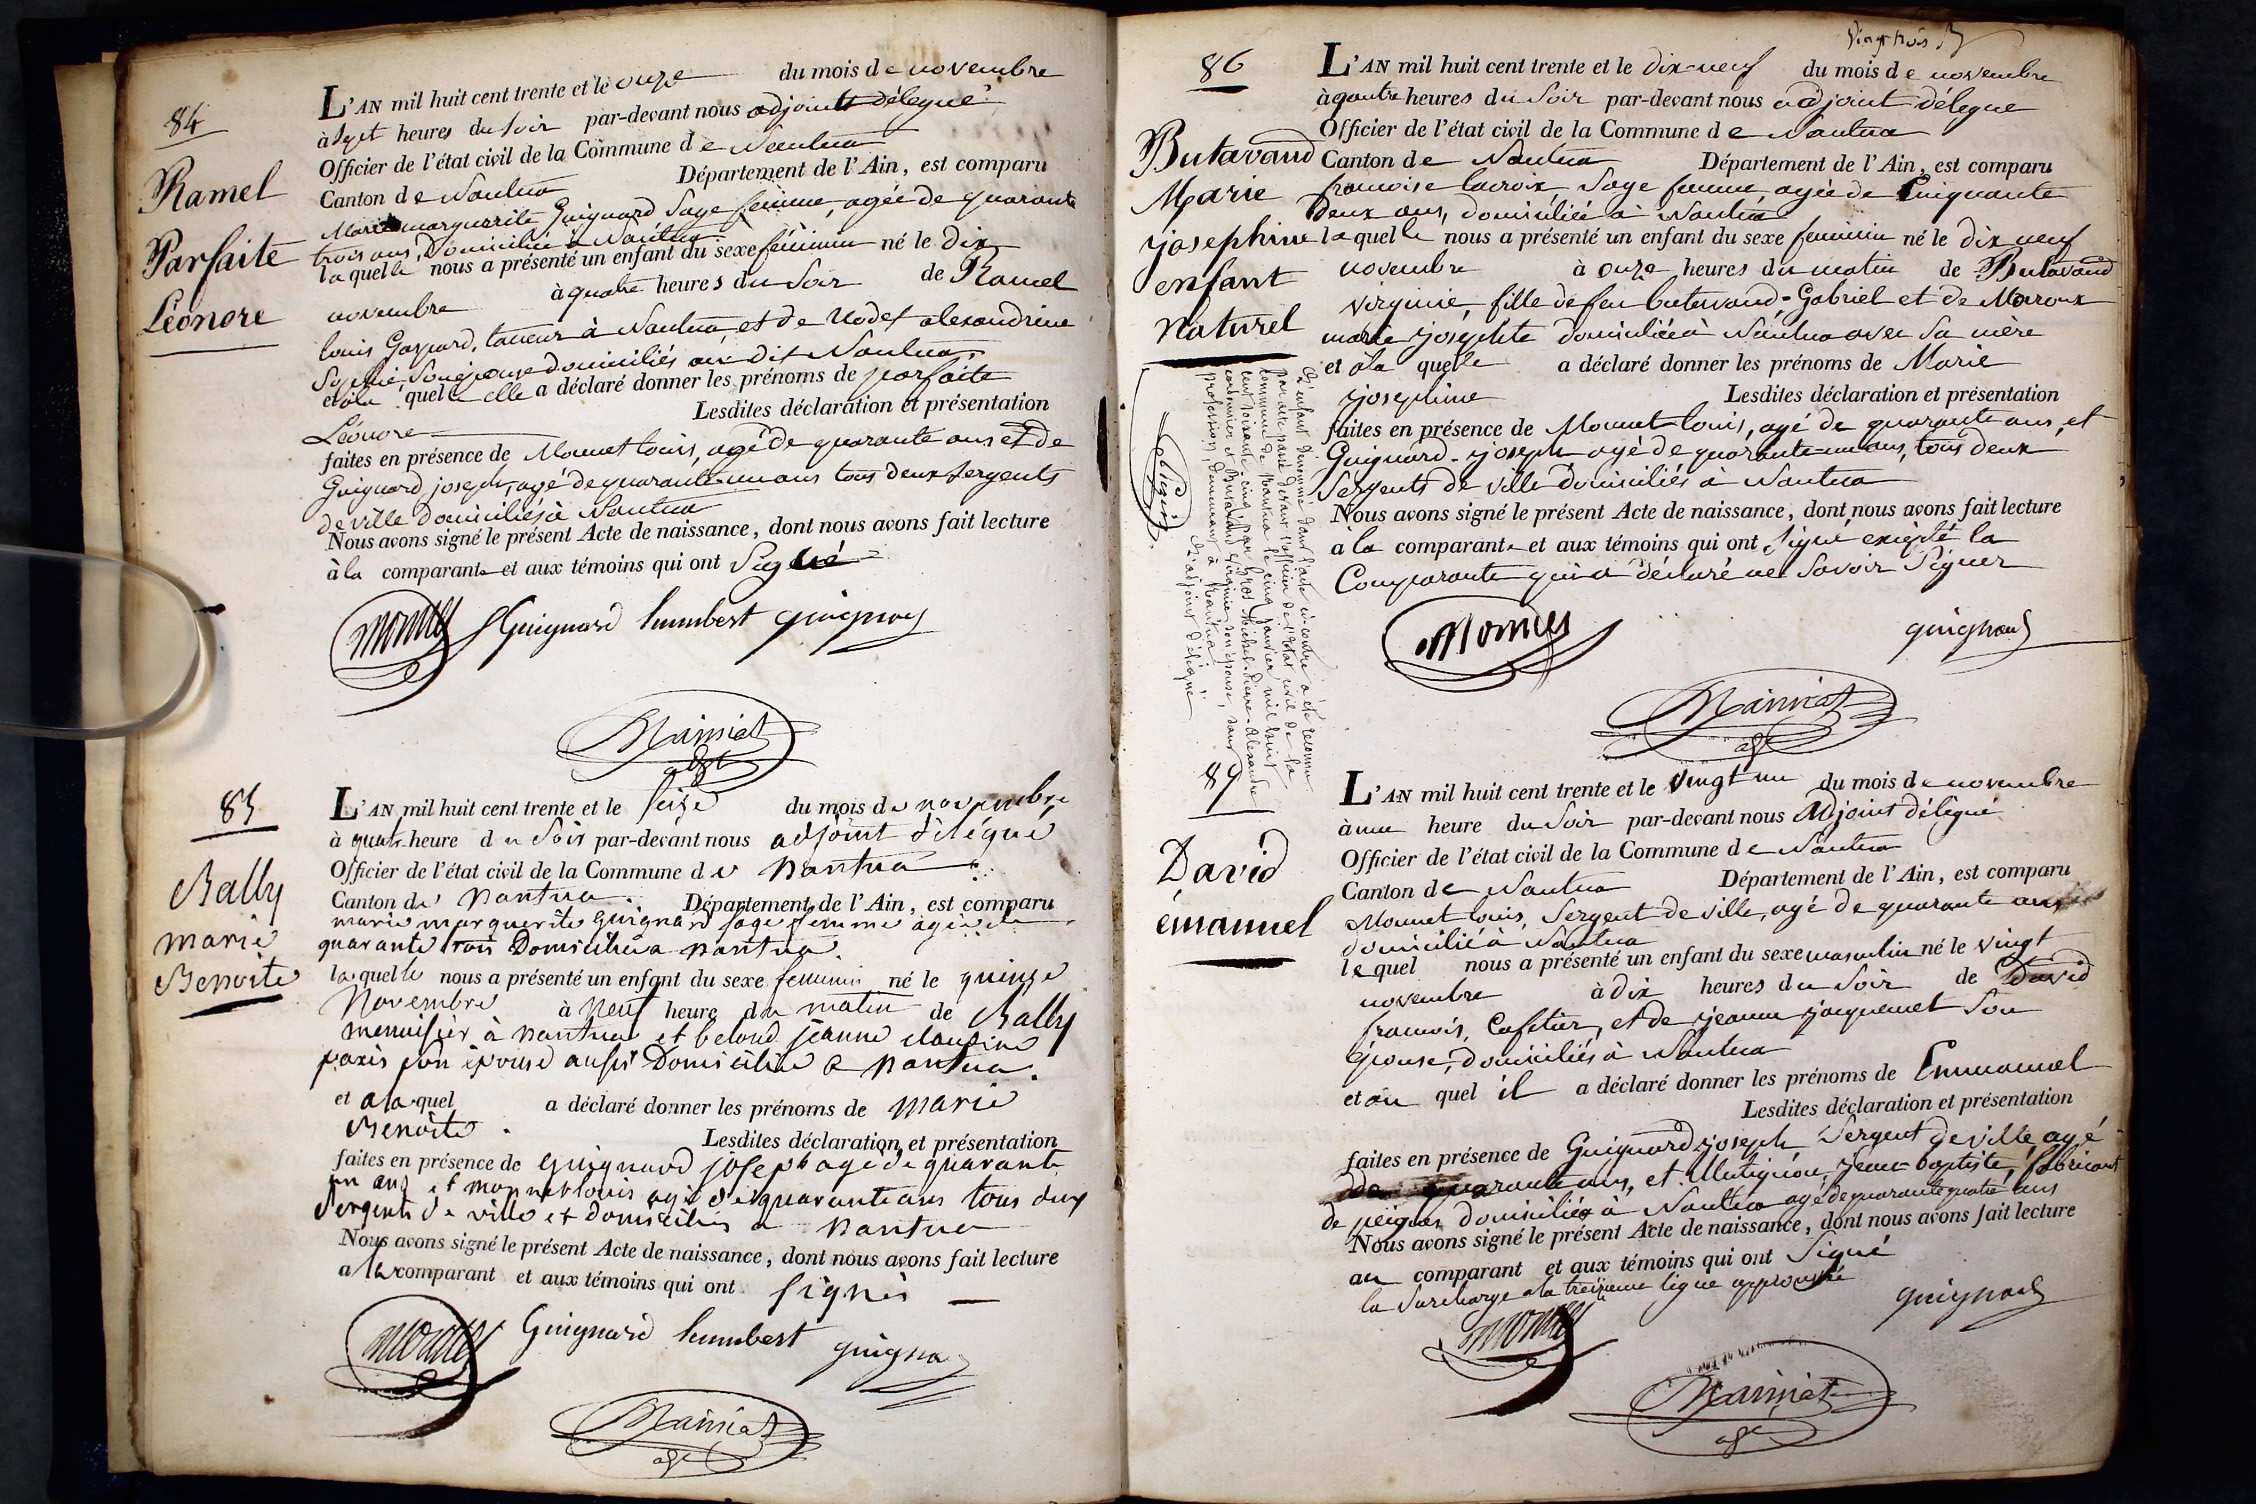 84
Ramel
Parfaite
Léonore
L'AN mil huit cent trente et le onze du mois de novembre
à sept heures du soir par-devant nous adjoint délégué
Officier de l'état civil de la Commune de Nantua
Canton de Nantua Département de l'Ain, est comparu
Marie marguerite Guignard Sage femme, agée de quarante
trois ans, Domiciliée à Nantua
laquelle nous a présenté un enfant du sexe féminin né le dix
novembre à quatre heures du Soir de Ramel
louis Gaspard, taneur à Nantua et de Rodet alexandrine
Sophie, Son épouse domiciliés au dit Nantua
et à la quelle elle a déclaré donner les prénoms de parfaite
Léonore Lesdites déclaration et présentation
faites en présence de Monnet louis, agé de quarante ans et de
Guignard joseph, agé de quarante un ans tous deux Sergents
de ville domiciliés à Nantua
Nous avons signé le présent Acte de naissance, dont nous avons fait lecture
à la comparante et aux témoins qui ont Signé
Monnet fe Guignard humbert guignard
85
Bally
marie
Benoite
L'AN mil huit cent trente et le seize du mois de novembre
à quatre heure du Soir par-devant nous adjoint délégué
Officier de l'état civil de la Commune de Nantua
Canton de Nantua Département de l'Ain, est comparu
marie marguerite guignard sage femme agée de
quarante trois Domiciliée a nantua
laquelle nous a présenté un enfant du sexe feminin né le quinze
Novembre à neuf heure du matin de Bally
menuisier à nantua et jeanne claudine
son épouse aussi Domiciliée a nantua.
et a la quel a déclaré donner les prénoms de marie
Benoite. Lesdites déclaration et présentation
faites en présence de guignard joseph agé de quarante
un ans et monnet louis agé de quarante ans tous deux
Sergents de ville et domiciliés a nantua
Nous avons signé le présent Acte de naissance, dont nous avons fait lecture
a la comparant et aux témoins qui ont signés
Monnet Guignard humbert guignard
86
Butavand
Marie
josephine
enfant
naturel
vingt trois
L'AN mil huit cent trente et le dix-neuf du mois de novembre
à quatre heures du Soir par-devant nous adjoint délégué
Officier de l'état civil de la Commune de Nantua
Canton de Nantua Département de l'Ain, est comparu
francoise lacroix Sage femme agée de Cinquante
deux ans, domiciliée à Nantua
la quelle nous a présenté un enfant du sexe feminin né le dix neuf
novembre à onze heures du matin de Butavand
virginie, fille de feu butavand Gabriel et de
marie josephte domiciliée à Nantua avec Sa mère
et à la quelle a déclaré donner les prénoms de Marie
josephine Lesdites déclaration et présentation
faites en présence de Monnet louis, agé de quarante ans, et
Guignard joseph agé de quarante un ans, tous deux
Sergents de ville domiciliés à Nantua
Nous avons signé le présent Acte de naissance, dont nous avons fait lecture
à la comparante et aux témoins qui ont signé excepté la
Comparante qui a déclaré ne Savoir Signer
Monnet guignard
L'enfant dénommé dans l'acte ci-contre a été reconnu
par acte passé devant l'officier de l'état civil de la
commune de Nantua le cinq janvier mil huit
cent soixante-cinq par Michel-Pierre-Alexandre
et Butavand Virginie son épouse, sans
profession, demeurant à Nantua.
L'adjoint délégué
David
émanuel
L'AN mil huit cent trente et le vingt un du mois de novembre
à une heure du Soir par-devant nous Adjoint délégué
Officier de l'état civil de la Commune de Nantua
Canton de Nantua Département de l'Ain, est comparu
Monnet louis, Sergent de ville, agé de quarante ans
domicilié à Nantua
lequel nous a présenté un enfant du sexe masculin né le vingt
novembre à dix heures du Soir de David
francois, Cafetier, et de jeanne jacquemet Son
épouse, domiciliés à Nantua
et au quel il a déclaré donner les prénoms de Emmanuel
Lesdites déclaration et présentation
faites en présence de Guignard joseph Sergent de ville agé
de quarante ans, et jean baptiste, fabricant
de peignes domiciliés à Nantua agé de quarante quatre ans
Nous avons signé le présent Acte de naissance, dont nous avons fait lecture
au comparant et aux témoins qui ont Signé
la Surcharge a la treizieme ligne approuvée
Monnet guignard